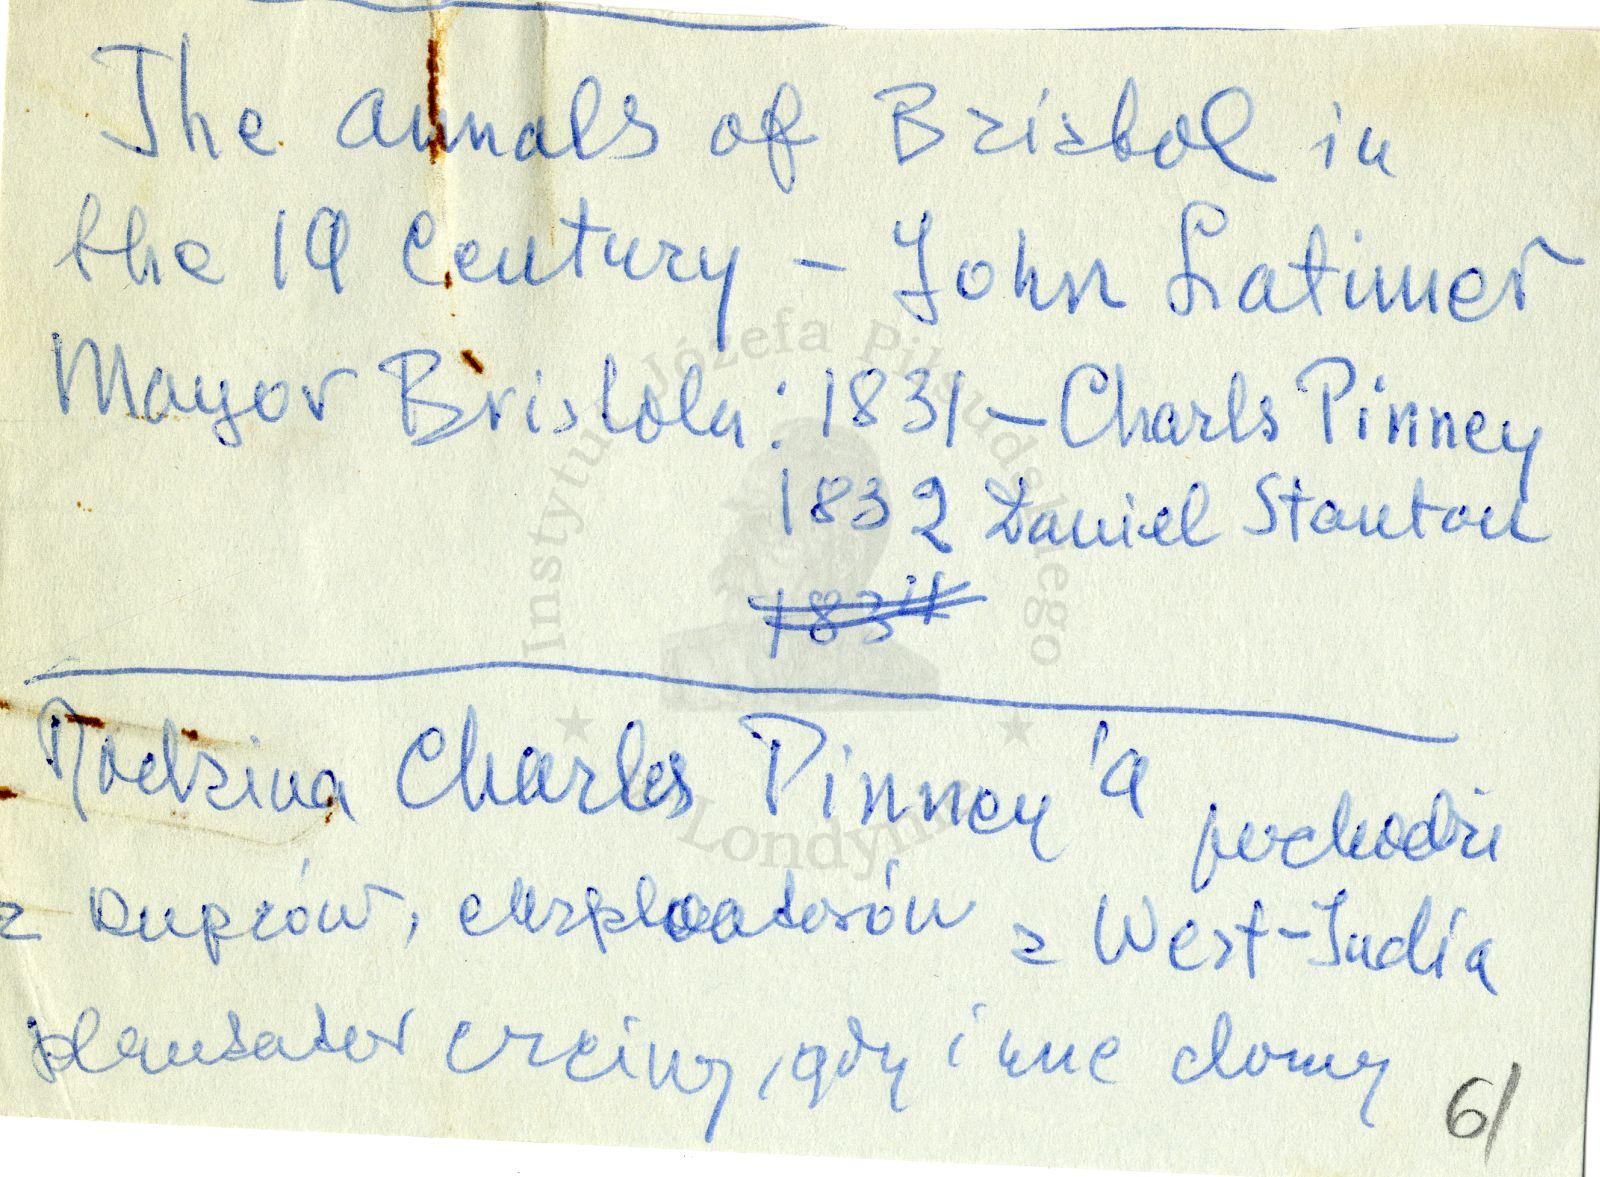 The annals of Bristol in
the 19 Century – John Latimer
Mayor Bristolu: 1831 – Charls Pinney
1832 Daniel Stanton
1834
Rodzina Charles Pinney'a pochodzi
z kupców, eksploatorów z West-India
plantator trzciny, gdy inne domy
6/
Instytut Józefa Piłsudskiego
Londyn